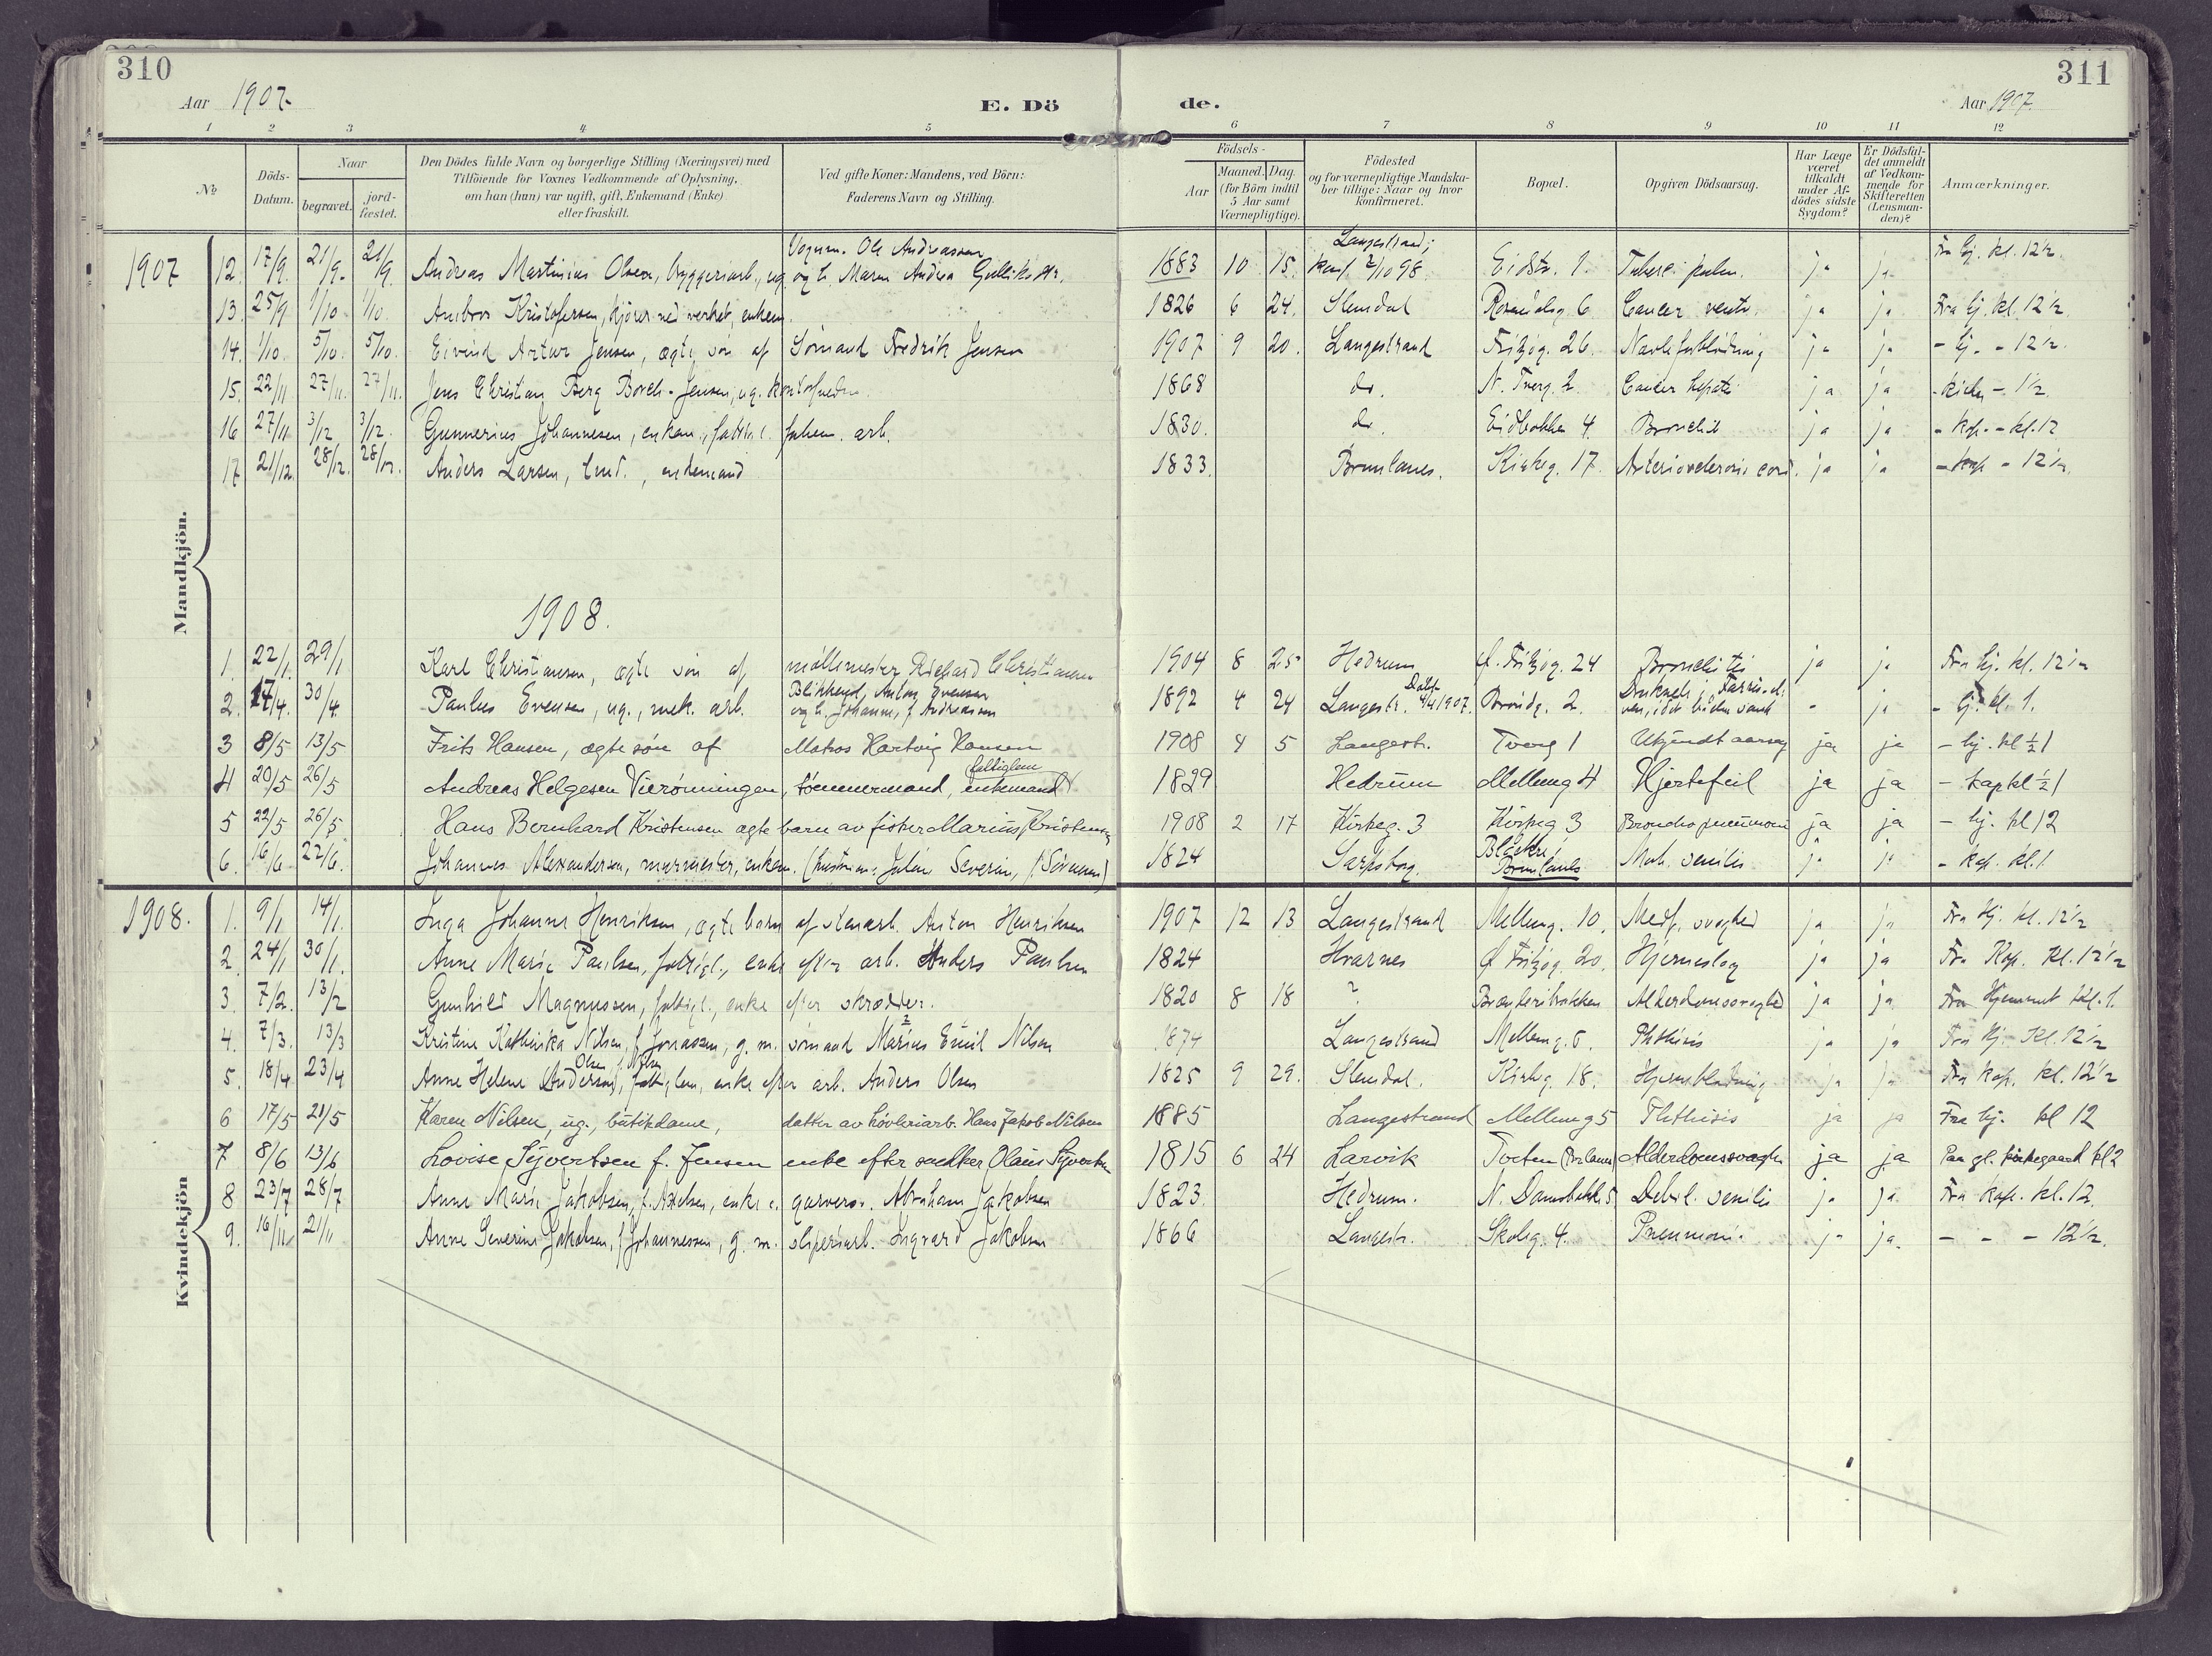 310
Aar 1907.
E. Dö
de.
Aar 1907
311
1 2 3 4 5 6 7 8 9 10 11 12
No
Döds-Datum.
Naar
begravet.
jord-fæstet.
Den Dödes fulde Navn og borgerlige Stilling (Næringsvei) med
Tilföiende för Voxnes Vedkommende af Oplysning,
om han (hun) var ugift, gift, Enkemand (Enke)
eller fraskilt.
Ved gifte Koner: Mandens, ved Börn:
Faderens Navn og Stilling.
Födsels-
Aar
Maaned. Dag.
(for Börn indtil
5 Aar samt
Værnepligtige).
Födested
og for værnepligtige Mandska-
ber tillige: Naar og hvor
konfirmeret.
Bopæl.
Opgiven Dödsaarsag.
Har Læge
været
tilkaldt
under Af-
dödes sidste
Sygdom?
Er Dödsfal-
det anmeldt
af Vedkom-
mende for
Skifteretten
(Lensman-
den)?
Anmærkninger.
Mandkjön.
Vognm. Ole Andreassen Langestrand;
1907 12. 17/9. 21/9. 21/9. Andreas Martinius Olsen, bryggeriarb., ug. og h. Maren Andrea 1883 10 15. konf. 2/10 98. Eidstr. 1. Tuberc. pulm. ja ja Fra hj. kl. 12 1/2.
13. 25/9 1/10 1/10. Ambros Kristofersen, kjører ved verket, enkem. 1826 6 24. Slemdal Rosendalsg. 6 Cancer ventr. ja ja Fra hj. kl. 12 1/2.
14. 1/10. 5/10. 5/10. Eivind Artur Jensen, ægte søn af Sømand Fredrik Jensen 1907 9 20. Langestrand Fritzøg. 26. Navleforblødning ja ja - hj. - 12 1/2.
15. 22/11 27/11. 27/11. Jens Christian Berg Borch-Jensen, ug. 1868 do. N. Tverg. 2 Cancer hepatis ja ja - 1 1/2
16 27/11 3/12 3/12. Gunnerius Johannesen, enkem., arb. 1830. do. Eidbakken 4. Bronchit ja ja - kap. - kl. 12
17 21/12. 28/12. 28/12. Anders Larsen, , enkemand 1833. Brunlanes. Kirkeg. 17. ja ja - kap - 12 1/2.
1908.
1. 22/1. 29/1 Karl Christiansen, ægte søn af møllemester Richard Christiansen 1904 8 25 Hedrum Ø. Fritzøg. 24 Bronchitis ja ja Fra hj. kl. 12 1/2
2. 17/4. 30/4. Paulus Evensen, ug., mek. arb. Anton Evensen og h. Johanne, f. Andreassen 1892 4 24 Langestr. 1907. Brøndg. 2. - ja - hj. kl. 1.
3 8/5 13/5 Frits Hansen, ægte søn af Matros Hartvig Hansen 1908 4 5 Langestr. Tverg 1 Ukjendt aarsag ja ja - hj. kl 1/2 1
fattiglem
4 20/5 26/5 Andreas Helgesen Vierønningen, tømmermand, enkemand 1829 Hedrum Mellemg 4 Hjertefeil ja ja - kap kl 1/2 1
5 22/5 26/5 Hans Bernhard Kristensen ægte barn av fisker Marius Kristensen 1908 2 17 Kirkeg. 3 Kirkeg 3 Bronchopneumoni ja ja - hj. kl 12
6. 16/6 22/6. Johannes Alexandersen, murmester, enkem. (hustruen: Severine, f. Sørensen) 1824 Sarpsborg. Brunlanes Mar. senilis ja ja - kap. kl. 1
Kvindekjön
1908. 1. 9/1 14/1. Inga Johanne Henriksen, ægte barn af stenarb. Anton Henriksen 1907 12 13 Langestrand Mellemg. 10. Medf. svaghed ja ja Fra hj. kl. 12 1/2
2. 24/1 30/1. Anne Marie Paulsen, fattigl., enke efter arb. Anders Paulsen 1824 Hvarnes Ø Fritzøg. 20. Hjerneslag ja ja Fra Kap. kl. 12 1/2
3. 7/2. 13/2 Gunhild Magnussen, fattigl., enke efter skrædder. 1820 8 18 ? Alderdomssvaghed ja ja Fra Hjemmet kl. 1.
4. 7/3. 13/3 Kristine Kathinka Nilsen, f. Jonassen, g. m. sømand Marius Emil Nilsen 1874 Langestrand Mellemg. 5. Phthisis ja ja Fra hj. kl. 12 1/2
Olsen f. Nilsen
5. 18/4 23/4 Anne Helene (Anderson), fattiglem, enke efter arb. Anders Olsen 1825 9 29. Slemdal. Kirkeg. 18. Hjerneblødning ja ja Fra kap. kl. 12 1/2
6 17/5 21/5 Karen Nilsen, ug., butikdame, datter av høvleriarb. Hans Jakob Nilsen 1885 Langestrand Mellemg 5 Phthisis ja ja Fra hj. kl 12
7 8/6 13/6 Lovise Syvertsen f. Jensen enke efter snedker Olaus Syvertsen 1815 6 24 Larvik Torten (Brlanes) Alderdomssvaghe ja ja Paa gl. kirkegaard kl 2
8 23/7 28/7 Anne Marie Jakobsen, f. Axelsen, enke e. garversv. Abraham Jakobsen 1823 Hedrum. N. Damsbakk. 5. Debil. senilis ja ja Fra kap. kl. 12.
9. 16/11 21/11 Anne Severine Jakobsen, f. Johannessen, g. m. sliperiarb. Ingvard Jakobsen 1866 Langestr. Skoleg. 4. Pneumoni. ja ja. - - - 12 1/2.